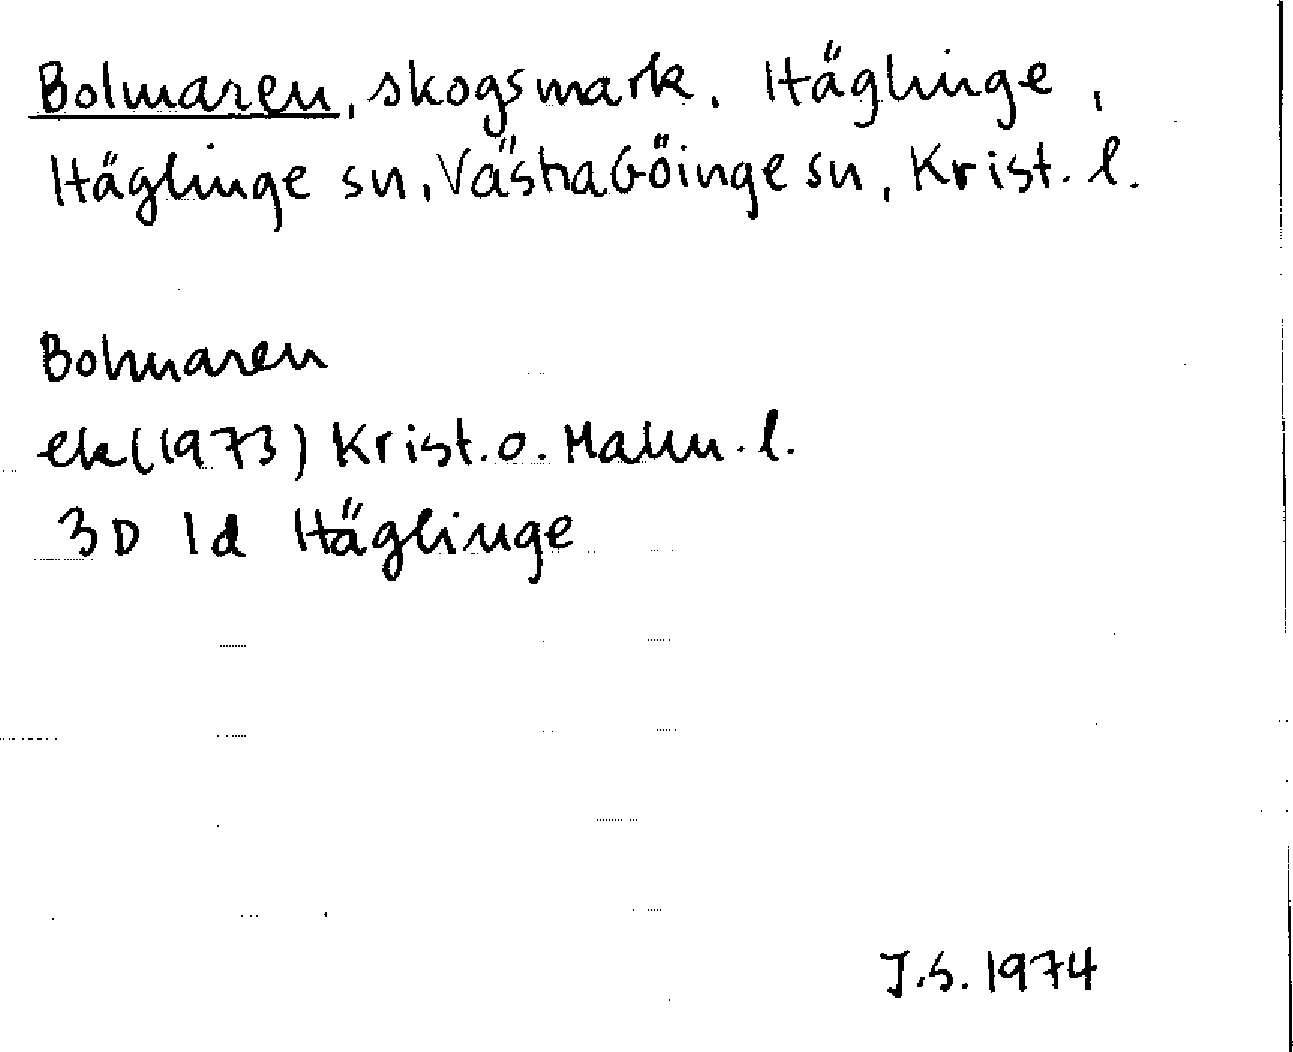 Bolmaren, skogsmark, Häglinge,
Häglinge sn, Västra Göinge sn, Krist. l.
Bolmaren
ek (1973) Krist. o. Malm. l.
3D 1d Häglinge
J.S. 1974